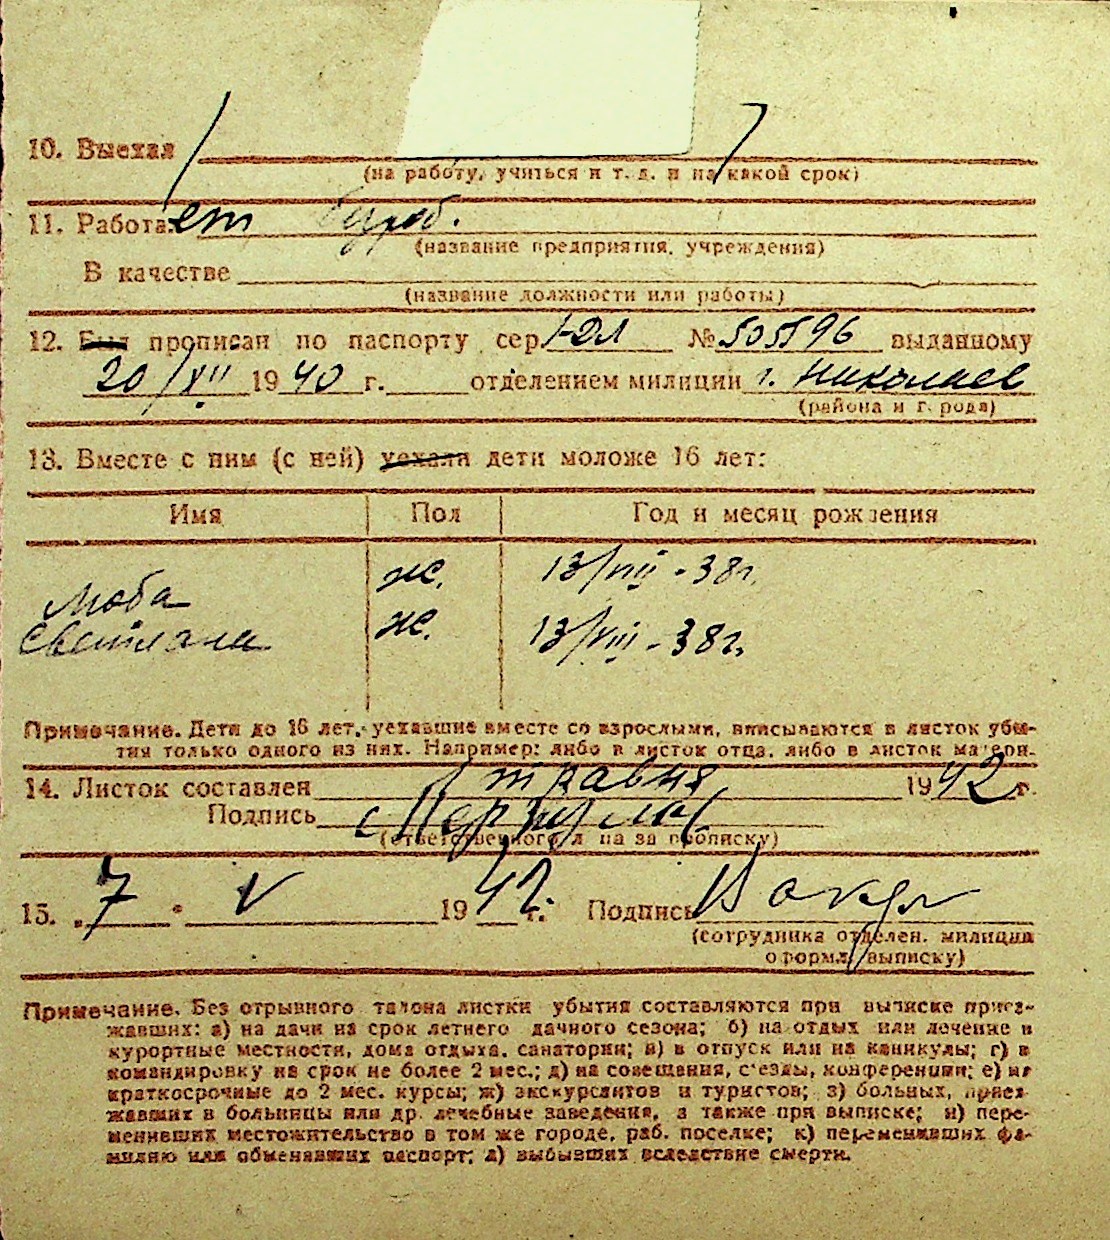 10. Выехал
(на работу, учиться и т. д. и на какой срок)
11. Работает
(название предприятия, учреждения)
В качестве
(название должности или работы)
12. Был прописан по паспорту сер. № 505596 выданному
20/XII 1940 г. отделением милиции г. Николаев
(района и города)
13. Вместе с ним (с ней) уехали дети моложе 16 лет:
Имя Пол Год и месяц рождения
ж. 13/VIII - 38 г.
Люба
Светлана ж. 13/VIII - 38 г.
Примечание. Дети до 16 лет, уехавшие вместе со взрослыми, вписываются в листок убы-
тия только одного из них. Например: либо в листок отца, либо в листок матери.
14. Листок составлен травня 1942 г.
Подпись
(ответственного л-ца за прописку)
15. „7" V 1942 г. Подпись
(сотрудника отделен. милиции
оформл. выписку)
Примечание. Без отрывного талона листки убытия составляются при выписке приез-
жавших: а) на дачи на срок летнего дачного сезона; б) на отдых или лечение в
курортные местности, дома отдыха, санатории; в) в отпуск или на каникулы; г) в
командировку на срок не более 2 мес.; д) на совещания, с'езды, конференции; е) на
краткосрочные до 2 мес. курсы; ж) экскурсантов и туристов; з) больных, приез-
жавших в больницы или др. лечебные заведения, а также при выписке; и) пере-
менивших местожительство в том же городе, раб. поселке; к) переменивших фа-
милию или обменявших паспорт; л) выбывших вследствие смерти.